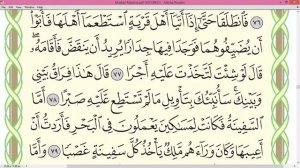 Mushaf Madina.pdf (SECURED) - Adobe Reader
٧٦ فَٱنطَلَقَا حَتَّىٰٓ إِذَآ أَتَيَآ أَهْلَ قَرْيَةٍ ٱسْتَطْعَمَآ أَهْلَهَا فَأَبَوْا۟
أَن يُضَيِّفُوهُمَا فَوَجَدَا فِيهَا جِدَارًا يُرِيدُ أَن يَنقَضَّ فَأَقَامَهُۥ
قَالَ لَوْ شِئْتَ لَتَّخَذْتَ عَلَيْهِ أَجْرًا ٧٧ قَالَ هَٰذَا فِرَاقُ بَيْنِى
وَبَيْنِكَ سَأُنَبِّئُكَ بِتَأْوِيلِ مَا لَمْ تَسْتَطِع عَّلَيْهِ صَبْرًا ٧٨ أَمَّا
ٱلسَّفِينَةُ فَكَانَتْ لِمَسَٰكِينَ يَعْمَلُونَ فِى ٱلْبَحْرِ فَأَرَدتُّ أَنْ
أَعِيبَهَا وَكَانَ وَرَآءَهُم مَّلِكٌ يَأْخُذُ كُلَّ سَفِينَةٍ غَصْبًا ٧٩ وَأَمَّا